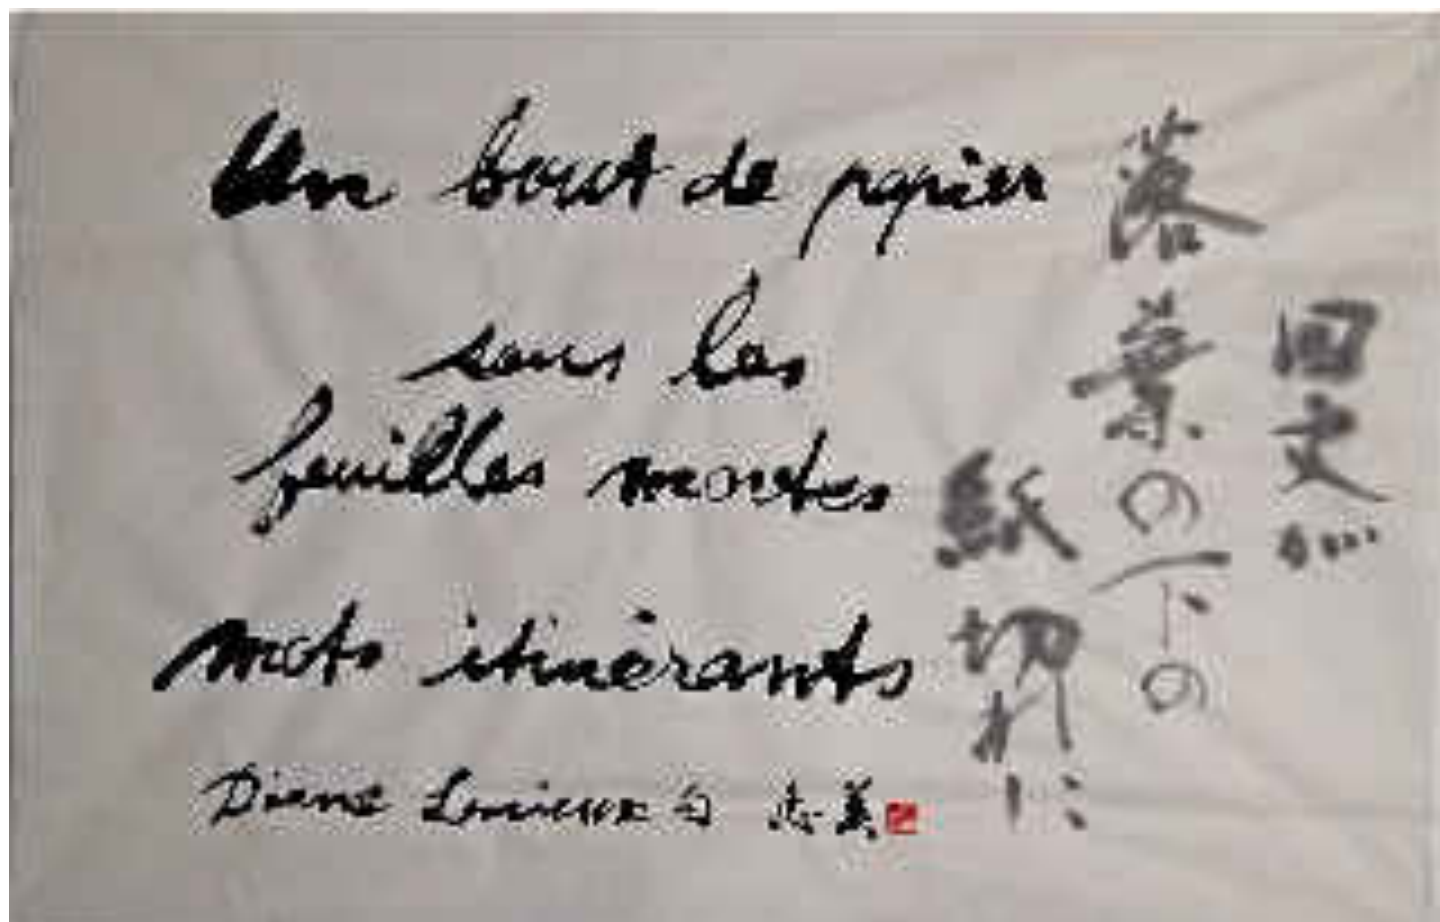 Un bout de papier
sous les
feuilles mortes
mots itinérants
Diane Lemieux 句
回文が
落葉の下の
紙切れに